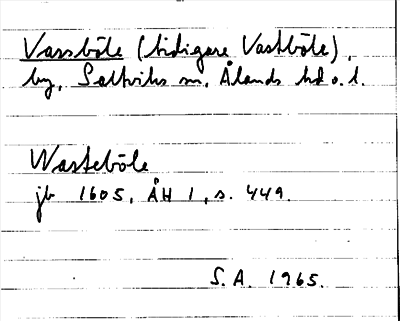 Vassböle (tidigare Vastböle),
by, Saltviks sn, Ålands hd o. l.
Wasteböle
jb 1605, ÅH 1, s. 449.
S.A. 1965.